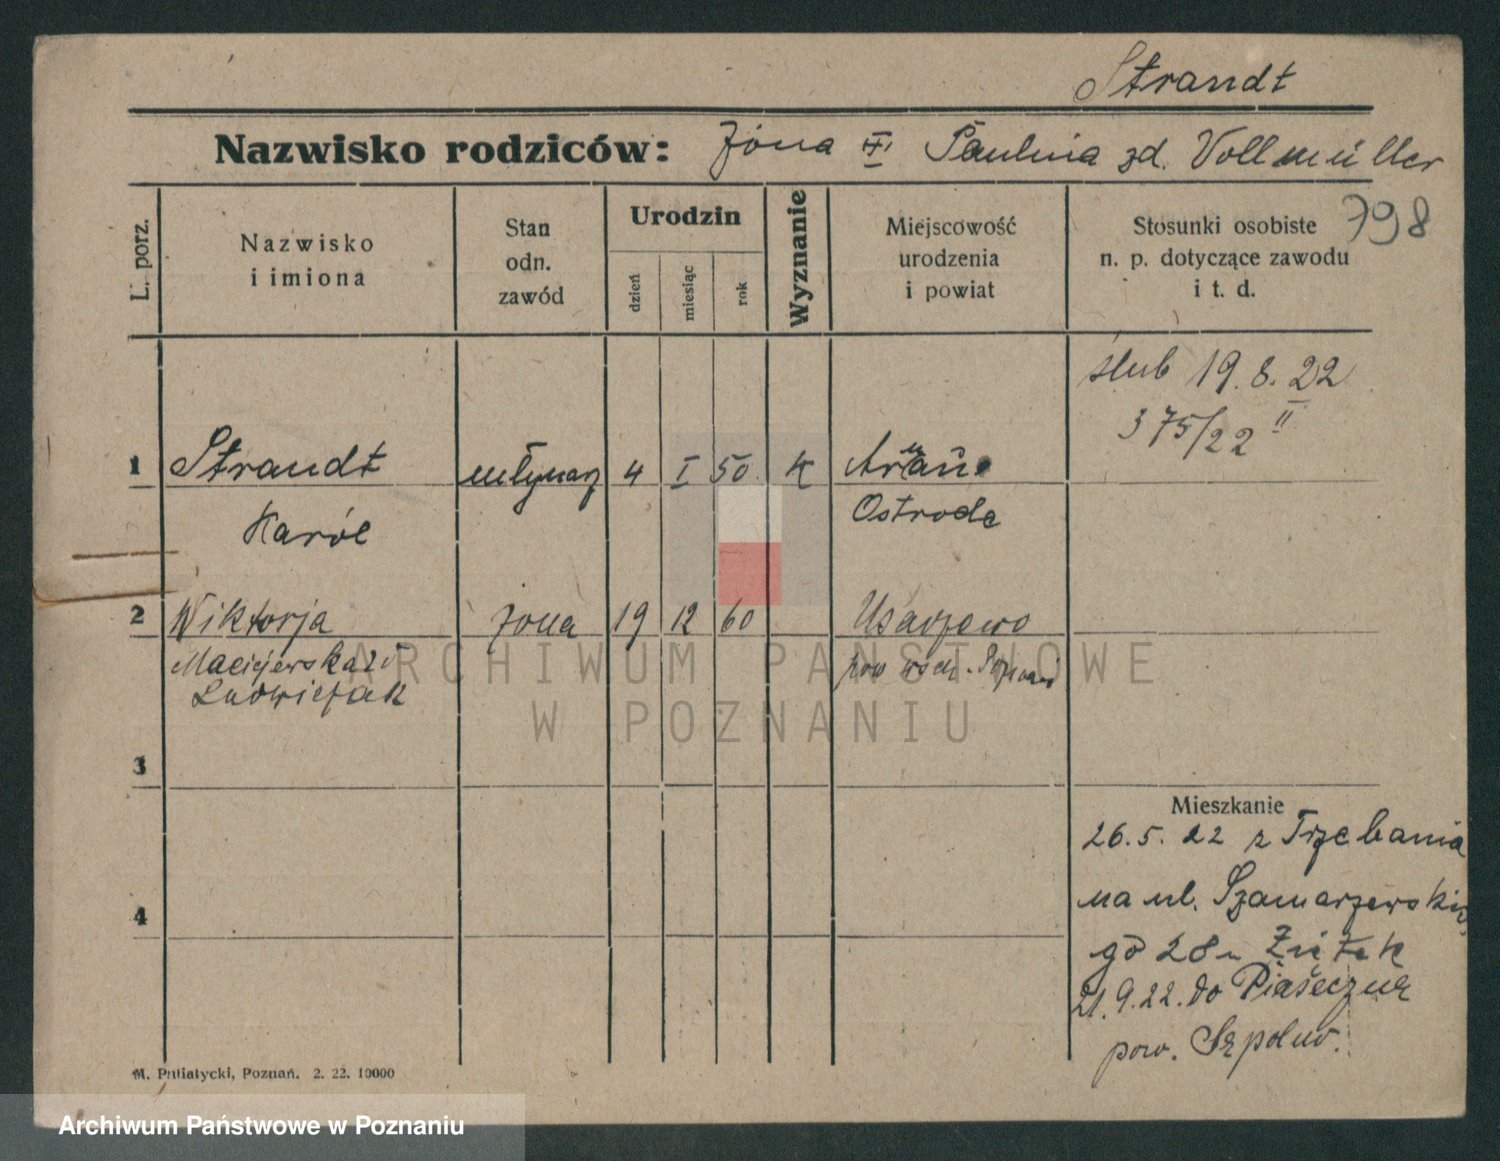 Strandt
Nazwisko rodziców: żona II Paulina zd. Vollmüller
798
L. porz.
Nazwisko
i imiona
Stan
odn.
zawód
Urodzin
dzień
miesiąc
rok
Wyznanie
Miejscowość
urodzenia
i powiat
Stosunki osobiste
n. p. dotyczące zawodu
i t. d.
ślub 19.8.22
375/22 II
1 Strandt młynarz 4 I 50 K
Karól Ostrode
2 Wiktorja żona 19 12 60 Uzarzewo
Maciejewska zd pow wsch.
Ludwiczak
3
4
Mieszkanie
26.5.22 z Trzebania
na ul. Szamarzewskie
go 28 u Ziętek
21.9.22. do Piaseczna
pow. Sępolno.
M. Putiatycki, Poznań. 2. 22. 10000
ARCHIWUM PAŃSTWOWE
W POZNANIU
Archiwum Państwowe w Poznaniu